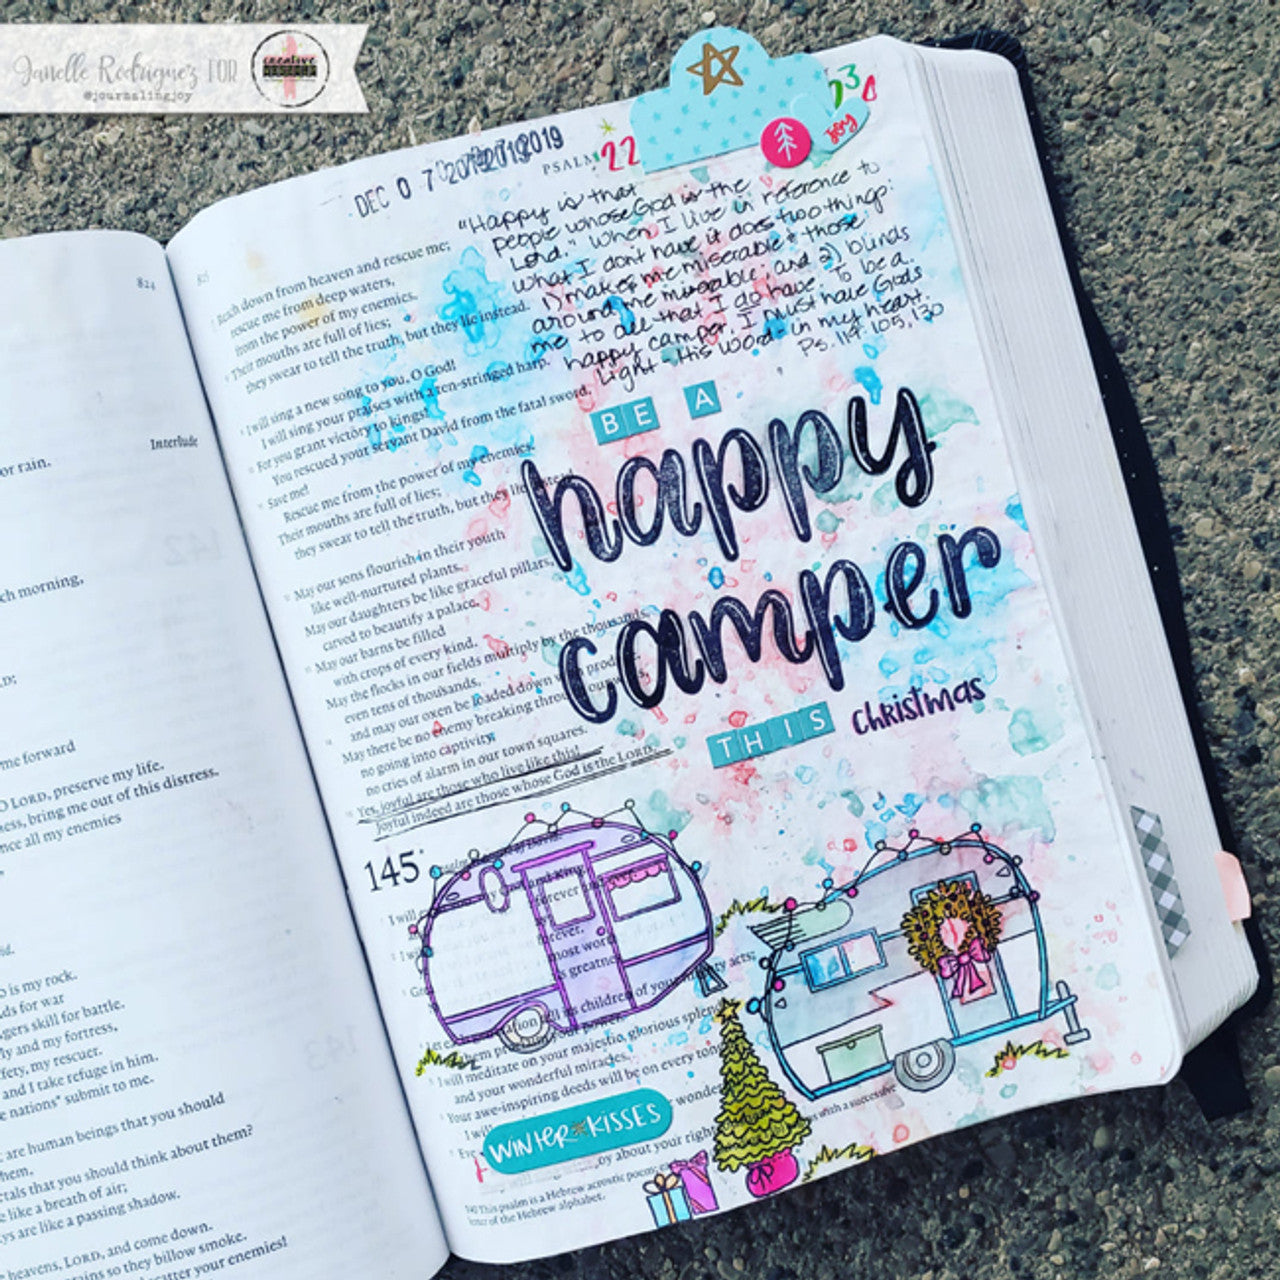 Janelle Rodriguez FOR
@journalingjoy
creative
824
or rain.
Interlude
ch morning,
me forward
O LORD, preserve my life.
ess, bring me out of this distress.
nce all my enemies
o is my rock.
ds for war
gers skill for battle.
ly and my fortress,
fety, my rescuer.
and I take refuge in him.
e nations* submit to me.
are human beings that you should
hem,
rtals that you should think about them?
e like a breath of air;
ys are like a passing shadow.
heavens, LORD, and come down.
ains so they billow smoke.
catter your enemies!
825
DEC 07 2019
PSALM
22
joy
"Happy is that
people whose God is the
Lord." When I live in reference to
what I don't have it does two things:
1) makes me miserable & those
around me miserable; and 2) blinds
me to all that I do have. To be a
happy camper, I must have Gods
light - His Word - in my heart.
Ps. 119 105, 130
Reach down from heaven and rescue me;
rescue me from deep waters,
from the power of my enemies.
Their mouths are full of lies;
they swear to tell the truth, but they lie instead.
I will sing a new song to you, O God!
I will sing your praises with a ten-stringed harp.
For you grant victory to kings!
You rescued your servant David from the fatal sword.
Save me!
Rescue me from the power of my enemies.
Their mouths are full of lies;
they swear to tell the truth, but they lie instead.
May our sons flourish in their youth
like well-nurtured plants.
May our daughters be like graceful pillars,
carved to beautify a palace.
May our barns be filled
with crops of every kind.
May the flocks in our fields multiply by the thousands,
even tens of thousands,
and may our oxen be loaded down with produce.
May there be no enemy breaking through our walls,
no going into captivity,
no cries of alarm in our town squares.
Yes, joyful are those who live like this!
Joyful indeed are those whose God is the LORD.
BE A
happy
camper
THIS Christmas
145
A psalm of praise of David.
I will
and King,
forever and ever.
I wi
forever.
most wor
s greatne
children of your mighty acts;
them proclaim your power.
I will meditate on your majestic, glorious splen
and your wonderful miracles.
Your awe-inspiring deeds will be on every ton
I will
Eve
wonde
joy about your right
WINTER KISSES
This psalm is a Hebrew acrostic poem;
s with a successive
letter of the Hebrew alphabet.